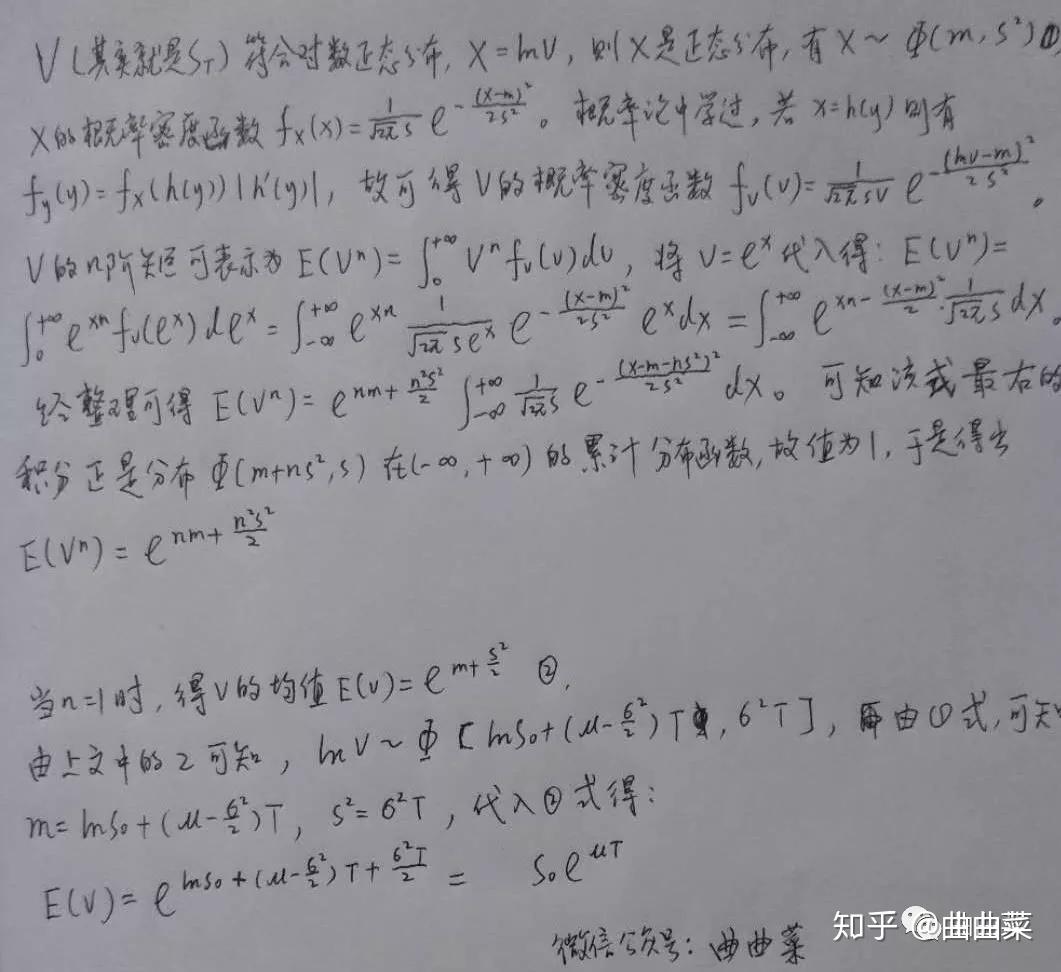 V(其实就是S_T) 符合对数正态分布, X=lnV, 则X是正态分布, 有X~Φ(m,s²)①
X的概率密度函数 f_X(x)=\frac{1}{\sqrt{2π}s} e^{-\frac{(x-m)^2}{2s^2}}。概率论中学过, 若x=h(y)则有
f_y(y)=f_X(h(y))|h'(y)|, 故可得V的概率密度函数 f_V(v)=\frac{1}{\sqrt{2π}sv} e^{-\frac{(lnv-m)^2}{2s^2}}。
V的n阶矩可表示为 E(V^n)=\int_0^{+∞} V^n f_v(v)dv, 将 v=e^x 代入得: E(V^n)=
\int_0^{+∞} e^{xn} f_v(e^x) de^x = \int_{-∞}^{+∞} e^{xn} \frac{1}{\sqrt{2π}se^x} e^{-\frac{(x-m)^2}{2s^2}} e^x dx = \int_{-∞}^{+∞} e^{xn-\frac{(x-m)^2}{2}} \cdot \frac{1}{\sqrt{2π}s} dx。
经整理可得 E(V^n)=e^{nm+\frac{n^2s^2}{2}} \int_{-∞}^{+∞} \frac{1}{\sqrt{2π}s} e^{-\frac{(x-m-ns^2)^2}{2s^2}} dx。可知该式最右的
积分正是分布Φ(m+ns²,s) 在(-∞,+∞) 的累计分布函数, 故值为1, 于是得出
E(V^n)=e^{nm+\frac{n^2s^2}{2}}
当n=1时, 得V的均值E(v)=e^{m+\frac{s^2}{2}} ②,
由上文中的2可知, lnV~Φ[lnS_0+(μ-\frac{σ^2}{2})T, σ²T], 再由①式, 可知
m=lnS_0+(μ-\frac{σ^2}{2})T, s²=σ²T, 代入②式得:
E(V)=e^{lnS_0+(μ-\frac{σ^2}{2})T+\frac{σ^2T}{2}} = S_0e^{μT}
微信公众号: 曲曲菜
知乎 @曲曲菜